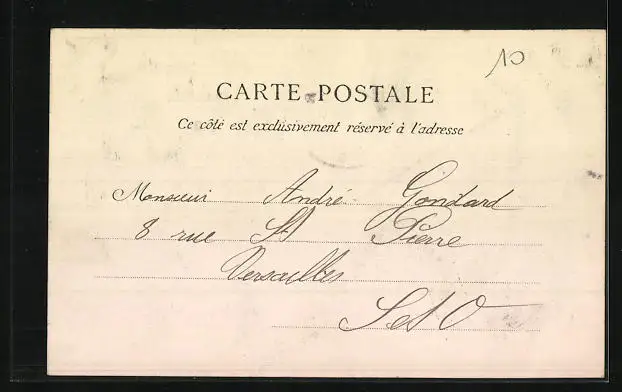 10
CARTE POSTALE
Ce côté est exclusivement réservé à l'adresse
Monsieur André Gondard
8 rue St Pierre
Versailles
S et O